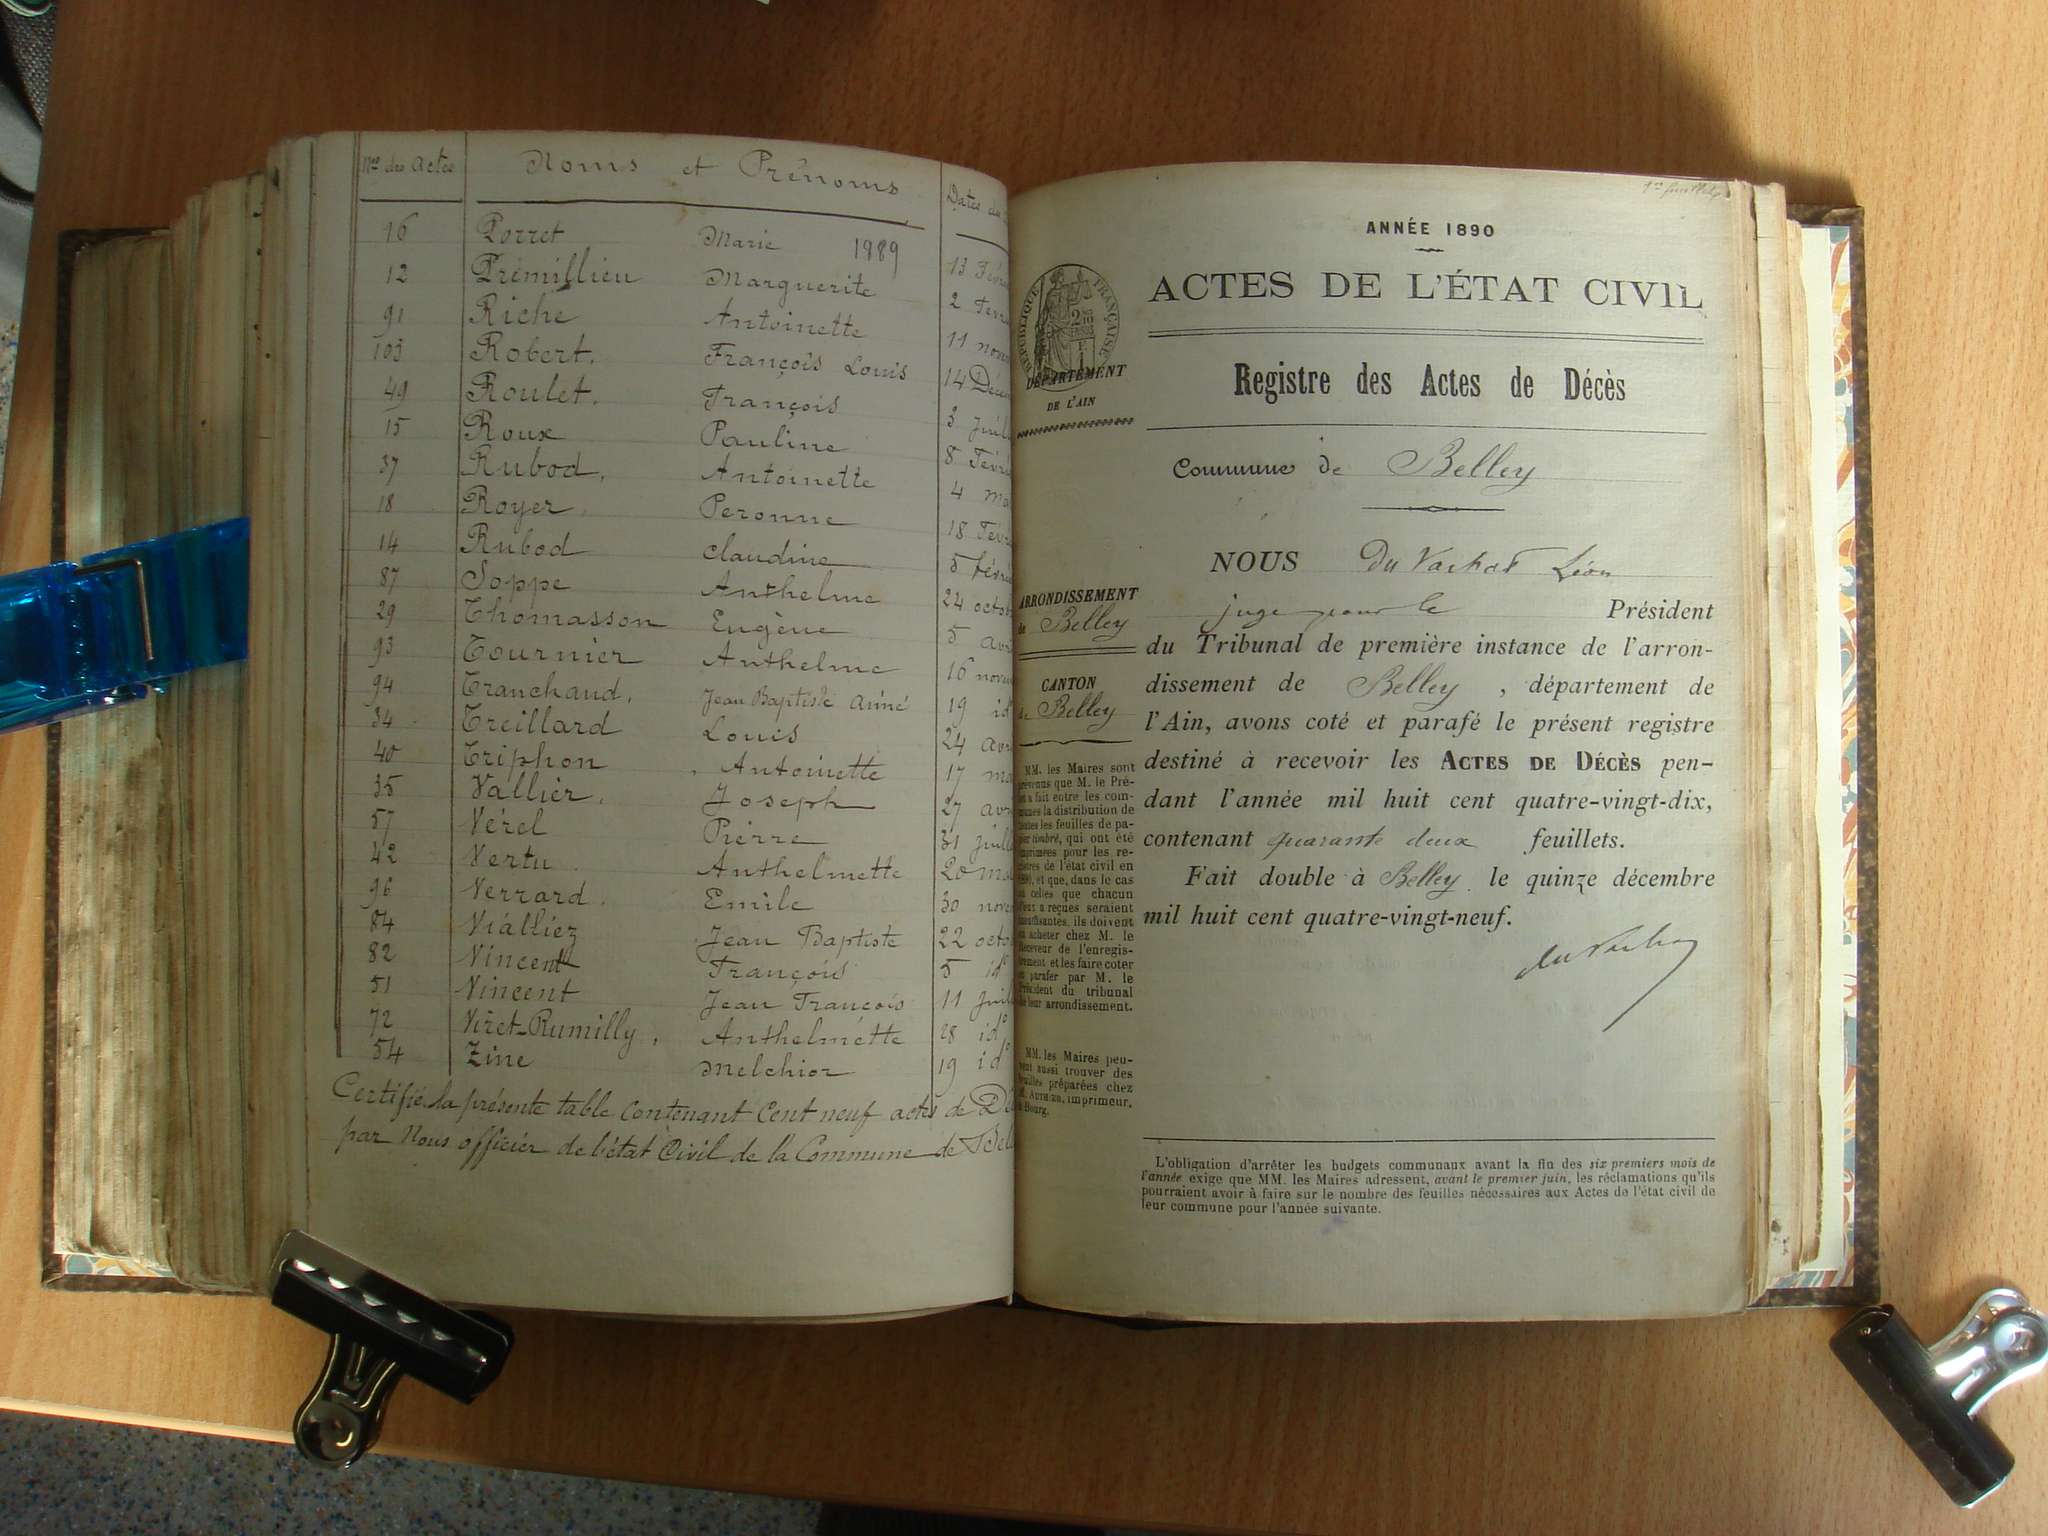 Nos des Actes Noms et Prénoms Dates des
16 Porret Marie 1989 13 Févri
12 Prémillieu Marguerite 2 Fevr
91 Riche Antoinette 11 nove
103 Robert. François Louis 14 Décem
49 Roulet. François 3 juil
15 Roux Pauline 8 Févri
37 Rubod. Antoinette 4 ma
18 Royer. Peronne 18 Févr
14 Rubod claudine 5 févrie
87 Soppe Anthelme 24 octob
29 Thomasson Eugène 5 avri
93 Tournier Anthelme 16 novem
94 Tranchand. Jean Baptiste Aimé 19 id
34 Treillard Louis 24 avri
40 Triphon Antoinette 17 ma
35 Vallier. Joseph 27 avri
57 Verel Pierre 31 juille
42 Vertu. Anthelmette 20 mai
96 Verrard. Emile 30 novem
84 Vialliez Jean Baptiste 22 octo
82 Vincent François 5 ido
51 Vincent Jean François 11 juil
72 Viret-Rumilly. Anthelmette 28 ido
54 Zine Melchior 19 ido
Certifié la présente table contenant cent neuf actes de Dé
par Nous officier de l'état Civil de la Commune de Bell
ANNÉE 1890
ACTES DE L'ÉTAT CIVIL
RÉPUBLIQUE FRANÇAISE
DÉPARTEMENT
DE L'AIN
Registre des Actes de Décès
Commune de Belley
NOUS Du Vachat Léon
juge pour le Président
du Tribunal de première instance de l'arron-
dissement de Belley, département de
l'Ain, avons coté et parafé le présent registre
destiné à recevoir les ACTES DE DÉCÈS pen-
dant l'année mil huit cent quatre-vingt-dix,
contenant quarante deux feuillets.
Fait double à Belley le quinze décembre
mil huit cent quatre-vingt-neuf.
du Vachat
ARRONDISSEMENT
de Belley
CANTON
de Belley
MM. les Maires sont
prévenus que M. le Pré-
fet a fait entre les com-
munes la distribution de
toutes les feuilles de pa-
pier timbré, qui ont été
imprimées pour les re-
gistres de l'état civil en
1890, et que, dans le cas
où celles que chacun
d'eux a reçues seraient
insuffisantes, ils doivent
en acheter chez M. le
Receveur de l'enregis-
trement et les faire coter
et parafer par M. le
Président du tribunal
de leur arrondissement.
MM. les Maires peu-
vent aussi trouver des
feuilles préparées chez
imprimeur,
à Bourg.
L'obligation d'arrêter les budgets communaux avant la fin des six premiers mois de
l'année exige que MM. les Maires adressent, avant le premier juin, les réclamations qu'ils
pourraient avoir à faire sur le nombre des feuilles nécessaires aux Actes de l'état civil de
leur commune pour l'année suivante.